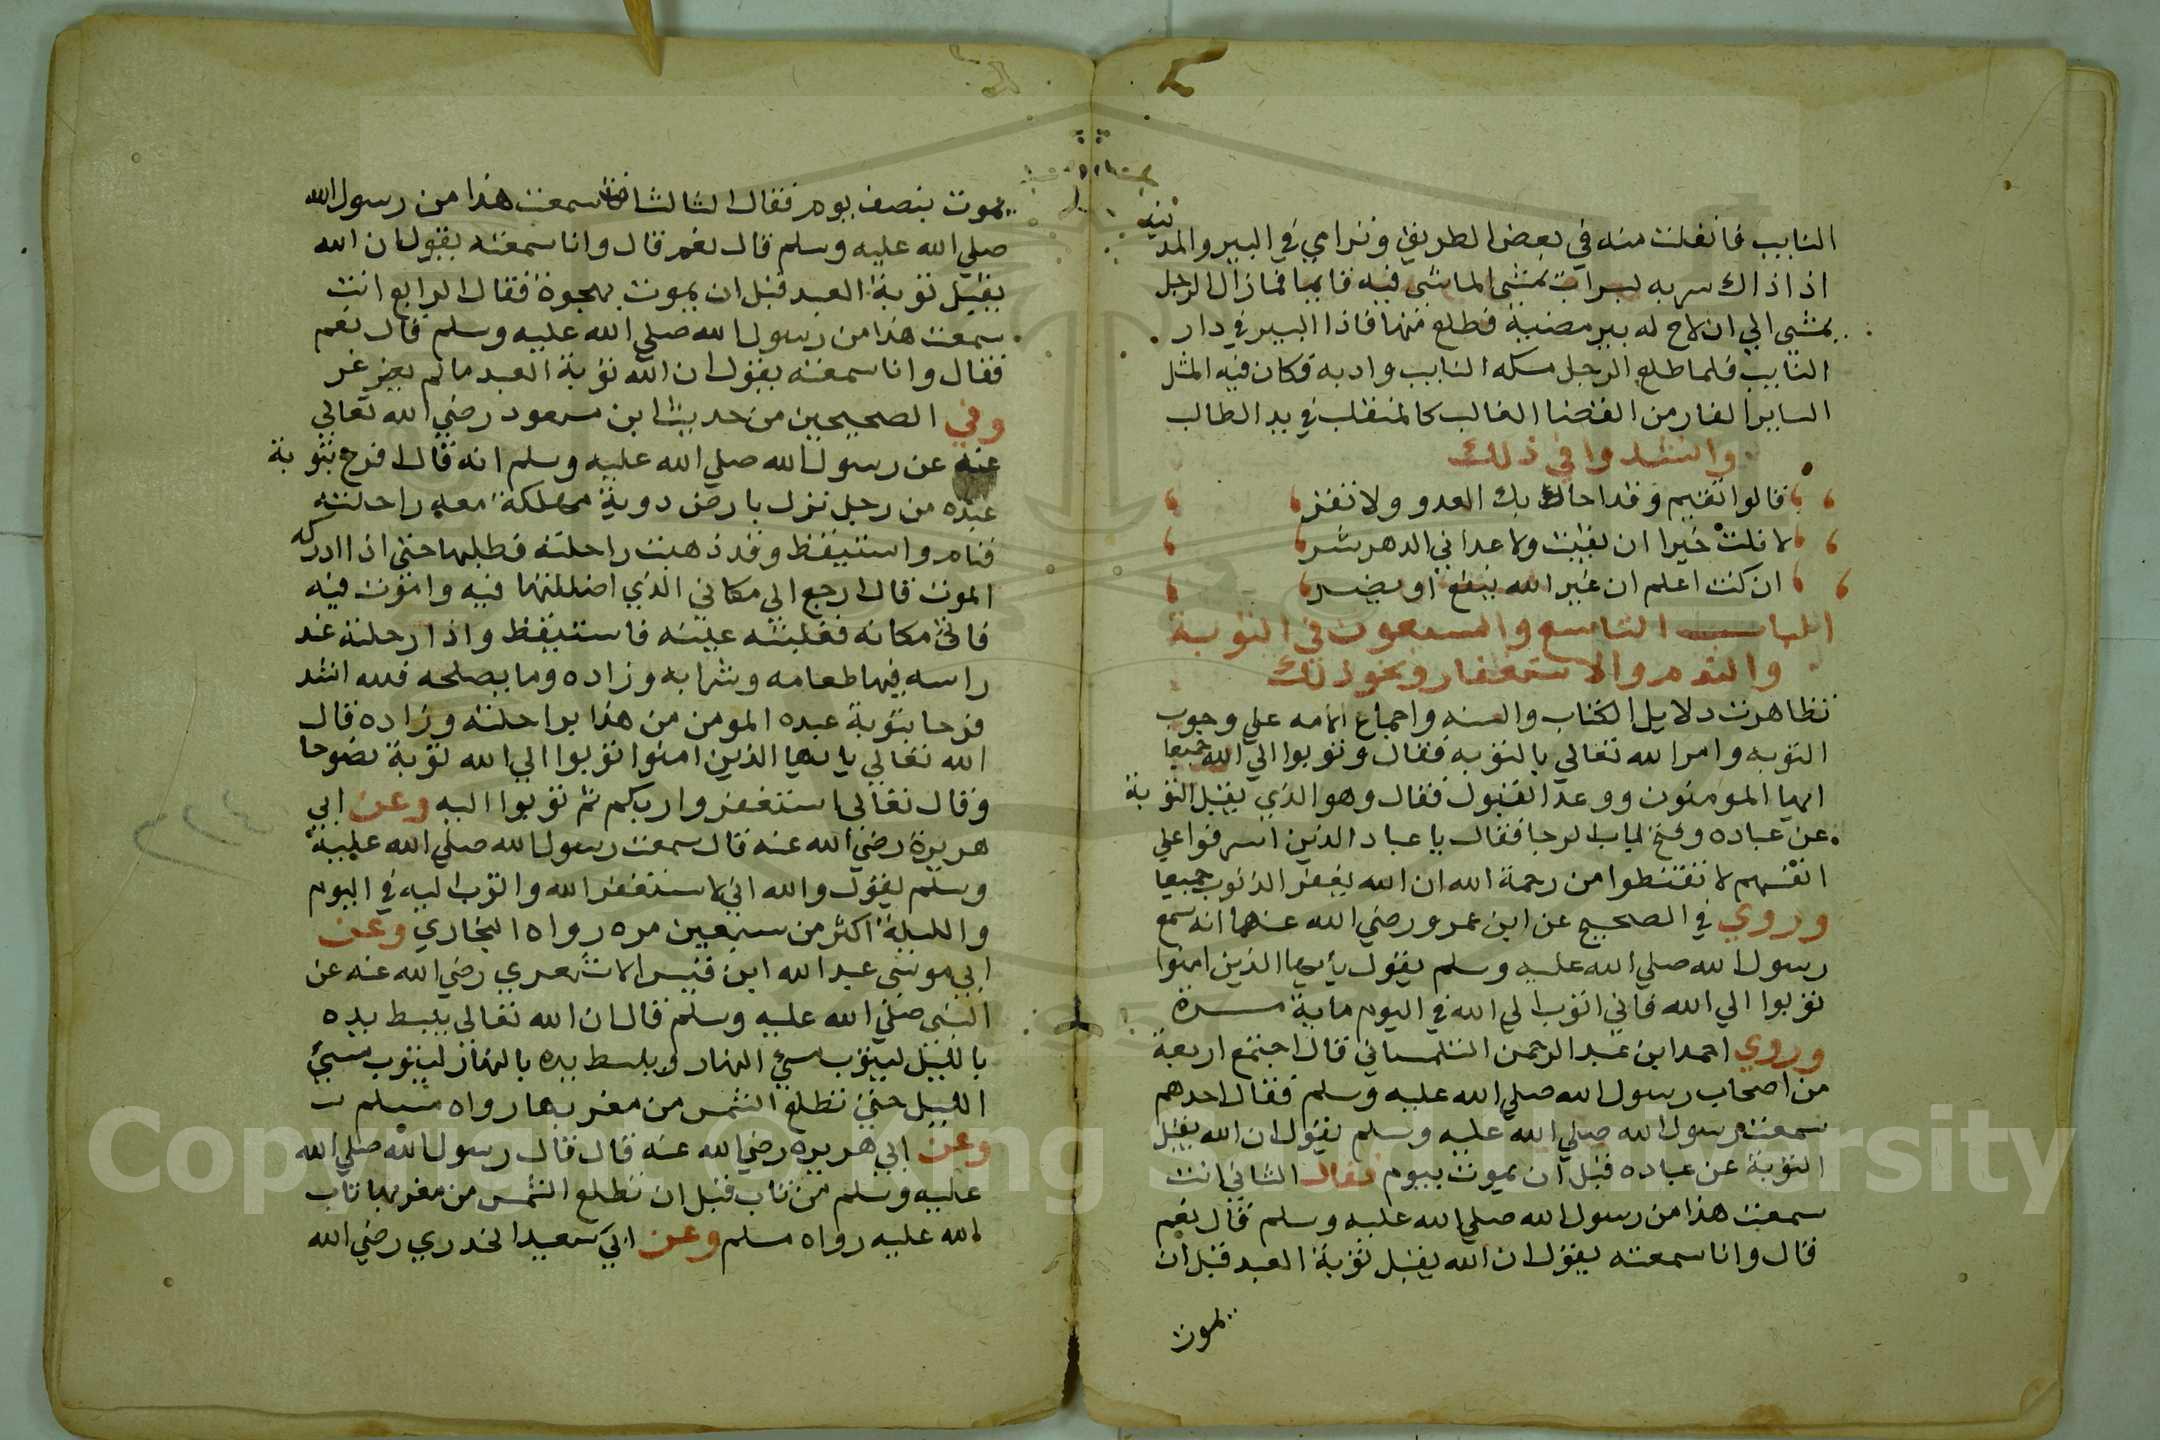 النايب فانفلت منه في بعض الطريق وترامي في البير والمدينة
اذ اذاك سربه لسراب يمشي الماشي فيه قايما فما زال الرجل
يمشي الي ان لاح له بير مضية فطلع منها فاذا البير في دار
النايب فلما طلع الرجل مسكه النايب وادبه فكان فيه المثل
الساير الفار من القضا الغالب كالمتقلب في يد الطالب
وانشدوا في ذلك
قالوا تقيم وقد احاط بك العدو ولا تفر
لا نلت خيرا ان بقيت ولا عداني الدهر شر
ان كنت اعلم ان غير الله ينفع او يضر
الباب التاسع والسبعون في التوبة
والندم والاستغفار ونحو ذلك
تظاهرت دلايل الكتاب والسنه واجماع الامه علي وجوب
التوبه وامر الله تعالي بالتوبه فقال وتوبوا الي الله جميعا
ايها المومنون ووعد القبول فقال وهو الذي يقبل التوبة
عن عباده وفتح لباب الرجا فقال يا عباد الذين اسرفوا علي
انفسهم لا تقنطوا من رحمة الله ان الله يغفر الذنوب جميعا
وروي في الصحيح عن ابن عمر ورضي الله عنهما انه سمع
رسول الله صلي الله عليه وسلم يقول يأيها الذين امنوا
توبوا الي الله فاني اتوب الي الله في اليوم ماية مرة
وروي احمد ابن عبد الرحمن السلماني قال اجتمع اربعة
من اصحاب رسول الله صلي الله عليه وسلم فقال احدهم
سمعت رسول الله صلي الله عليه وسلم يقول ان الله يقبل
التوبة عن عباده قبل ان يموت بيوم فقال الثاني انت
سمعت هذا من رسول الله صلي الله عليه وسلم قال نعم
قال وانا سمعته يقول ان الله يقبل توبة العبد قبل ان
يموت
يموت بنصف يوم فقال الثالث انت سمعت هذا من رسول الله
صلي الله عليه وسلم قال نعم قال وانا سمعته يقول ان الله
يقبل توبة العبد قبل ان يموت بهجوة فقال الرابع انت
سمعت هذا من رسول الله صلي الله عليه وسلم قال نعم
فقال وانا سمعته يقول ان الله توبة العبد مالم يغرغر
وفي الصحيحين من حديث ابن مسعود رضي الله تعالي
عنه عن رسول الله صلي الله عليه وسلم انه قال افرح بتوبة
عبده من رجل نزل بارض دوية مهلكة معه راحلته
فنام واستيقظ وقد ذهبت راحلته فطلبها حتي اذا ادركه
الموت قال ارجع الي مكاني الذي اضللتها فيه واموت فيه
فاتي مكانه فغلبته عينه فاستيقظ واذا رحلته عند
راسه فيها طعامه وشرابه وزاده وما يصلحه فلله اشد
فرحا بتوبة عبده المومن من هذا براحلته وزاده قال
الله تعالي يا يها الذين امنوا توبوا الي الله توبة نصوحا
وقال تعالي استغفروا ربكم ثم توبوا اليه وعن ابي
هريرة رضي الله عنه قال سمعت رسول الله صلي الله عليه
وسلم يقول والله اني لاستغفر الله واتوب اليه في اليوم
والليلة اكثر من سبعين مره رواه البخاري وعن
ابي موسي عبد الله ابن قيس الاشعري رضي الله عنه عن
النبي صلي الله عليه وسلم قال ان الله تعالي يبسط يده
بالليل ليتوب مسيء النهار ويبسط يده بالنهار ليتوب مسيء
الليل حتي تطلع الشمس من مغربها رواه مسلم
وعن ابي هريره رضي الله عنه قال قال رسول الله صلي الله
عليه وسلم من تاب قبل ان تطلع الشمس من مغربها تاب
الله عليه رواه مسلم وعن ابي سعيد الخدري رضي الله
Copyright © King Saud University